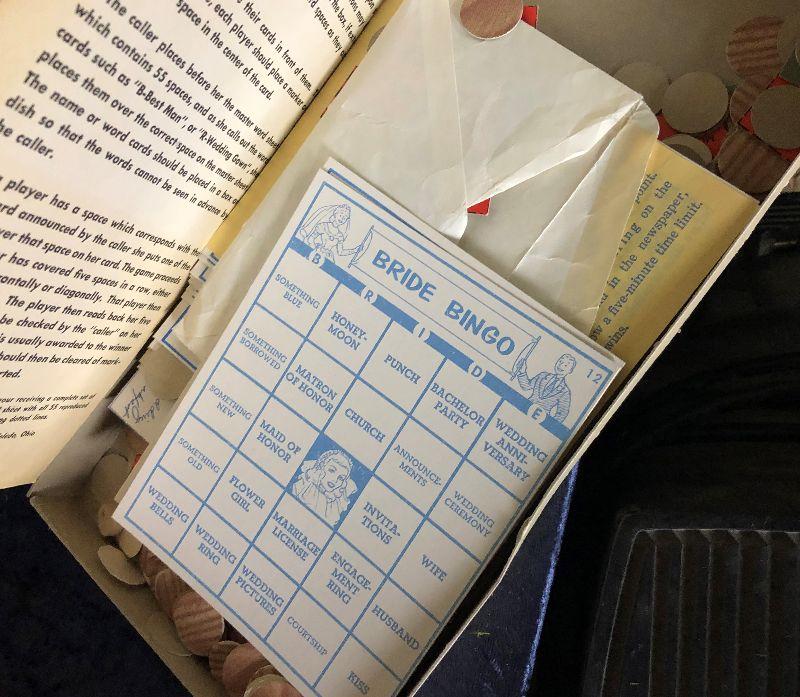 their cards in front of them
each player should place a marker
space in the center of the card.
The caller places before her the master word sheet
which contains 55 spaces, and as she calls out the word
cards such as "B-Best Man", or "R-Wedding Gown" she
places them over the correct space on the master sheet.
The name or word cards should be placed in a box or
dish so that the words cannot be seen in advance by
he caller.
a player has a space which corresponds with the
ard announced by the caller she puts one of the
ver that space on her card. The game proceeds
er has covered five spaces in a row, either
ontally or diagonally. That player then
The player then reads back her five
be checked by the "caller" on her
is usually awarded to the winner
hould then be cleared of mark-
rted.
your receiving a complete set of
sheet with all 55 reproduced
ng dotted lines.
oledo, Ohio
point.
ring on the
in the newspaper,
w a five-minute time limit.
wins.
BRIDE BINGO
12
B R I D E
SOMETHING
BLUE
HONEY-
MOON
PUNCH
BACHELOR
PARTY
WEDDING
ANNI-
VERSARY
SOMETHING
BORROWED
MATRON
OF HONOR
CHURCH
ANNOUNCE-
MENTS
WEDDING
CEREMONY
SOMETHING
NEW
MAID OF
HONOR
INVITA-
TIONS
WIFE
SOMETHING
OLD
FLOWER
GIRL
MARRIAGE
LICENSE
ENGAGE-
MENT
RING
HUSBAND
WEDDING
BELLS
WEDDING
RING
WEDDING
PICTURES
COURTSHIP
KISS